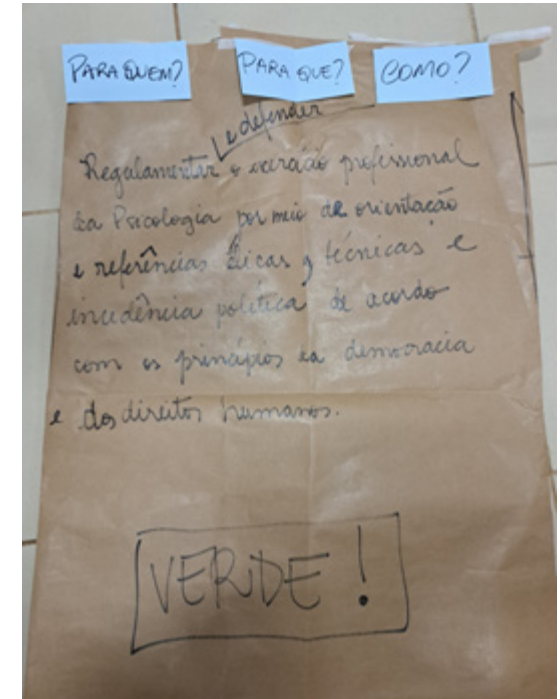 PARA QUEM? PARA QUE? COMO?
e defender
Regulamentar o exercício profissional
da Psicologia por meio de orientação
e referências éticas, técnicas e
incidência política de acordo
com os princípios da democracia
e dos direitos humanos.
VERDE!